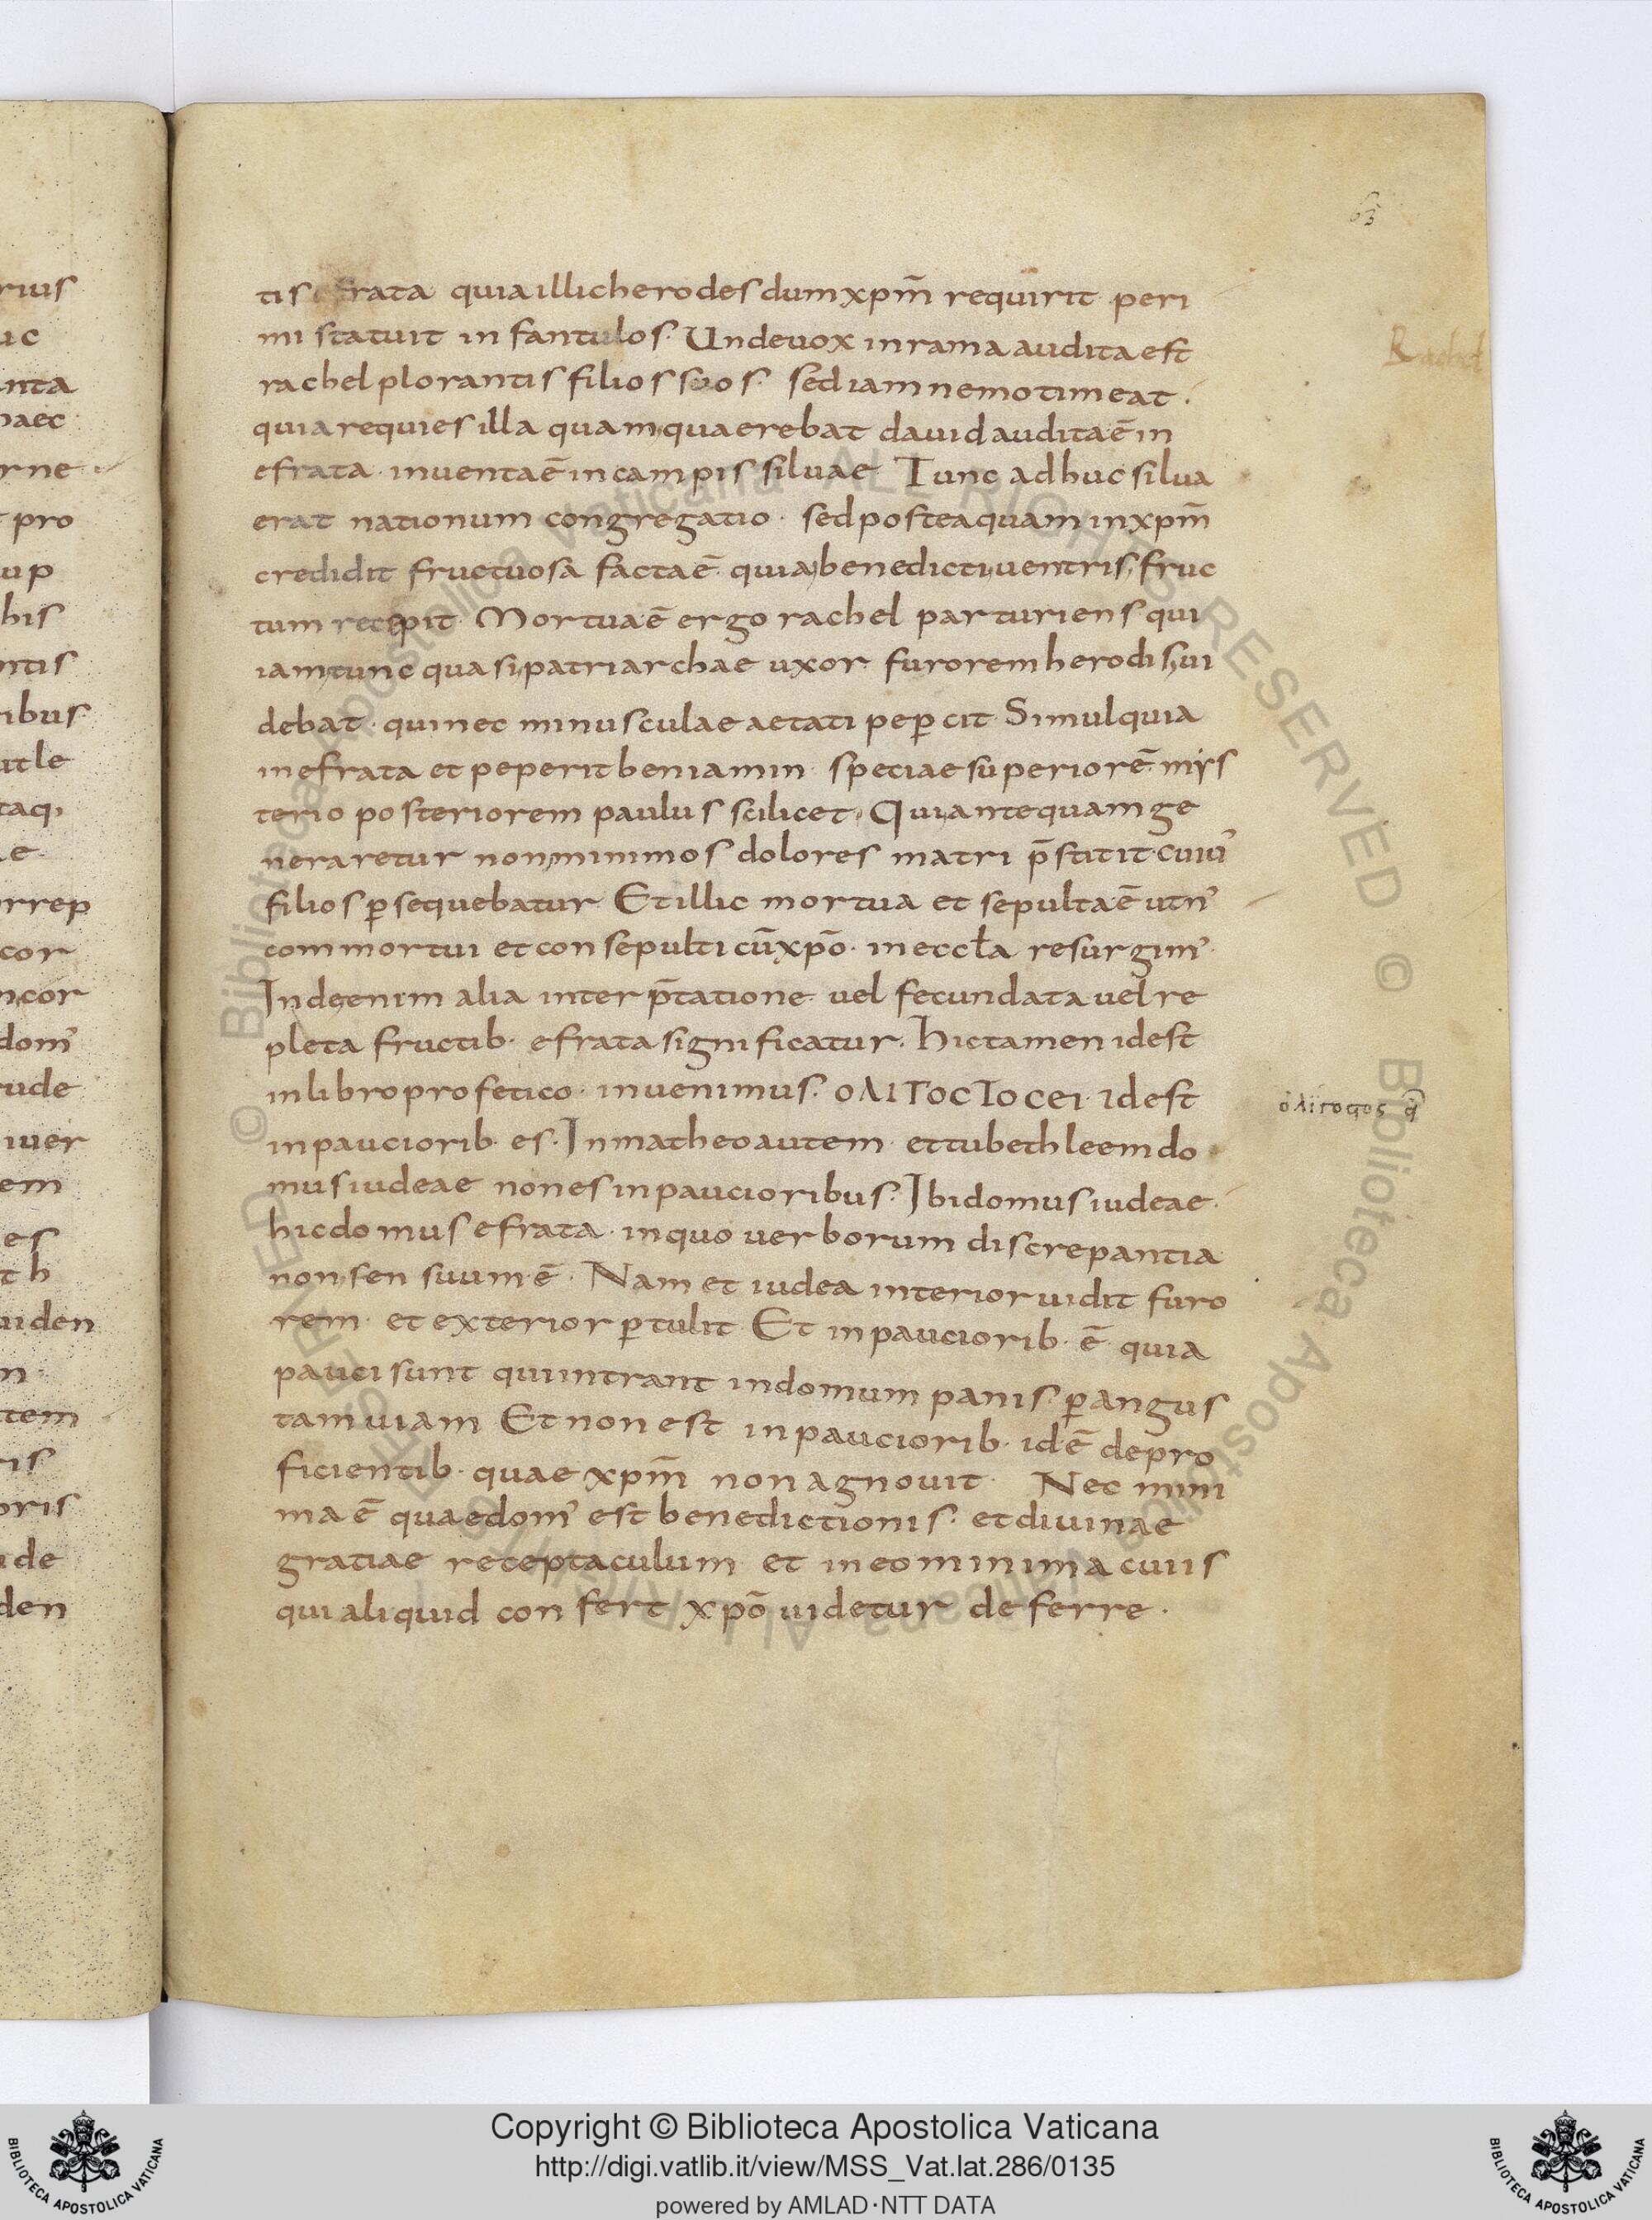 63
tis efrata quia illic herodes dum xpm̄ requirit peri
mi statuit in fantulos. Unde vox in rama audita est
Rachel
rachel plorantis filios suos. sed iam nemo timeat.
quia requies illa quam quaerebat dauid audita ē in
efrata. inuenta ē in campis siluae Tunc adhuc silua
erat nationum congregatio. sed postea quam in xpm̄
credidit fructuosa facta ē. quia benedicti uentris fruc
tum recepit. Mortua ē ergo rachel parturiens qui
iam tunc quasi patriarchae uxor furorem herodis ui
debat. qui nec minusculae aetati pep̱cit. Simul quia
in efrata et peperit beniamin specie superiorē. mys
terio posteriorem paulus scilicet. Qui antequam ge
neraretur non minimos dolores matri p̄stitit cuiꝰ
filios p̱sequebatur Et illic mortua et sepulta ē ut nꝰ
commortui et consepulti cū xpō. in eccla resurgimꝰ.
Inde enim alia interp̄tatione. uel fecundata uel re
pleta fructib. efrata significatur. Hic tamen id est
in libro profetico. inuenimus. ολιΓοcΤοcει. id est
ολιΓοςτος q̄
in pauciorib. es. In matheo autem et tu bethleem do
mus iudeae non es in paucioribus. Ibi domus iudeae.
hic domus efrata. in quo uerborum discrepantia
non sensuum ē. Nam et iudea interior uidit furo
rem et exterior p̱tulit Et in pauciorib. ē quia
pauci sunt qui intrant in domum panis. p̱ angus
tam uiam Et non est in pauciorib. id ē de pro
ficientib. quae xpm̄ non agnouit. Nec mini
ma ē quae domꝰ est benedictionis. et diuinae
gratiae receptaculum et in eo minima cui is
qui aliquid confert xpō uidetur deferre.
rius
uc
nta
haec
rne
pro
up
his
ntis
ribus
ut le
taq,
e.
rrep
cor
ncor
domꝰ
rude
iuer
em
es
t h
uiden
n.
tem
ris
oris
de
den
© Biblioteca Apostolica Vaticana ALL RIGHTS RESERVED © Biblioteca Apostolica Vaticana ALL RIGHTS RESERVED
Copyright © Biblioteca Apostolica Vaticana
http://digi.vatlib.it/view/MSS_Vat.lat.286/0135
powered by AMLAD·NTT DATA
BIBLIOTECA APOSTOLICA VATICANA
BIBLIOTECA APOSTOLICA VATICANA